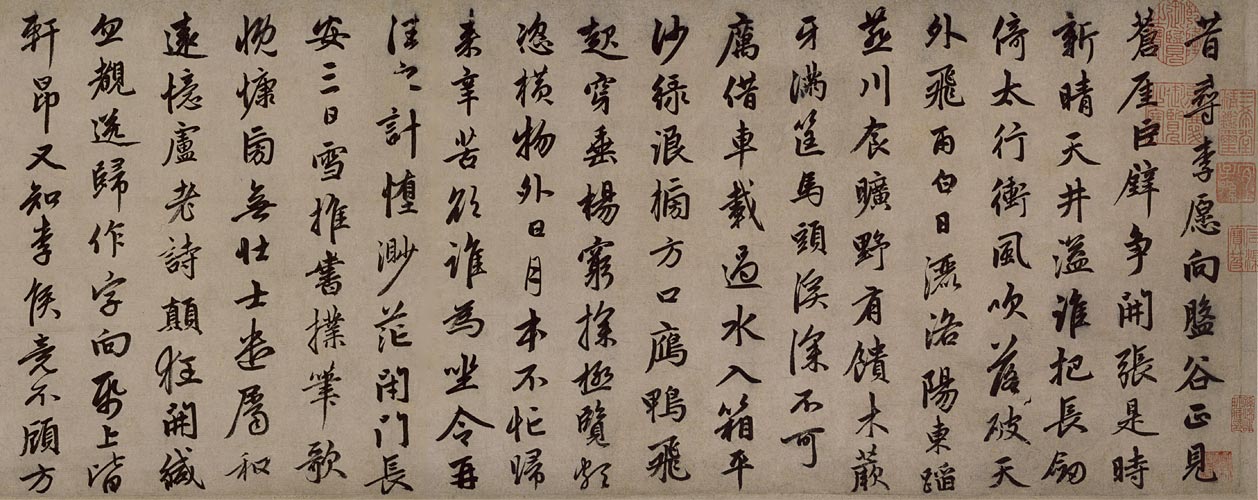 昔尋李愿向盤谷正見
蒼崖巨壁爭開張是時
新晴天井溢誰把長劒
倚太行衝風吹落破天
外飛雨白日灑洛陽東蹈
燕川食曠野有饋木蕨
牙滿筐馬頭溪深不可
厲借車載過水入箱平
沙綠浪榜方口鴈鴨飛
起穿垂楊窮探極覽頗
恣橫物外日月本不忙歸
来辛苦欲誰為坐令再
往之計墮渺茫閉門長
安三日雪推書撲筆歌
慨慷旁無壯士遣屬和
遠憶盧老詩顛狂開緘
忽覩送歸作字向紙上皆
軒昂又知李侯竟不顧方